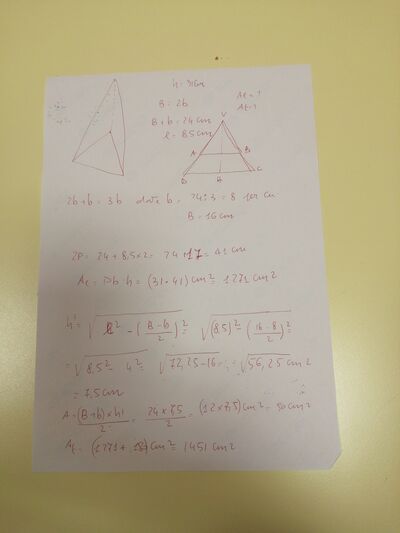 h = 31cm
B = 2b
Al = ?
At = ?
B + b = 24 cm
l = 8,5 cm
V
A
B
D
H
C
2b + b = 3b dove b = 24 : 3 = 8 per cui
B = 16 cm
2P = 24 + 8,5 x 2 = 24 + 17 = 41 cm
Al = 2p . h = (31 . 41) cm2 = 1271 cm2
h' = √ l2 - (B - b / 2)2 = √(8,5)2 - (16 - 8 / 2)2 =
= √8,5 2 - 4 2 = √72,25 - 16 = √56,25 cm2
= 7,5 cm
A = (B + b) x h' / 2 = 24 x 7,5 / 2 = (12 x 7,5) cm2 = 90 cm2
At = (1271 + 180) cm2 = 1451 cm2